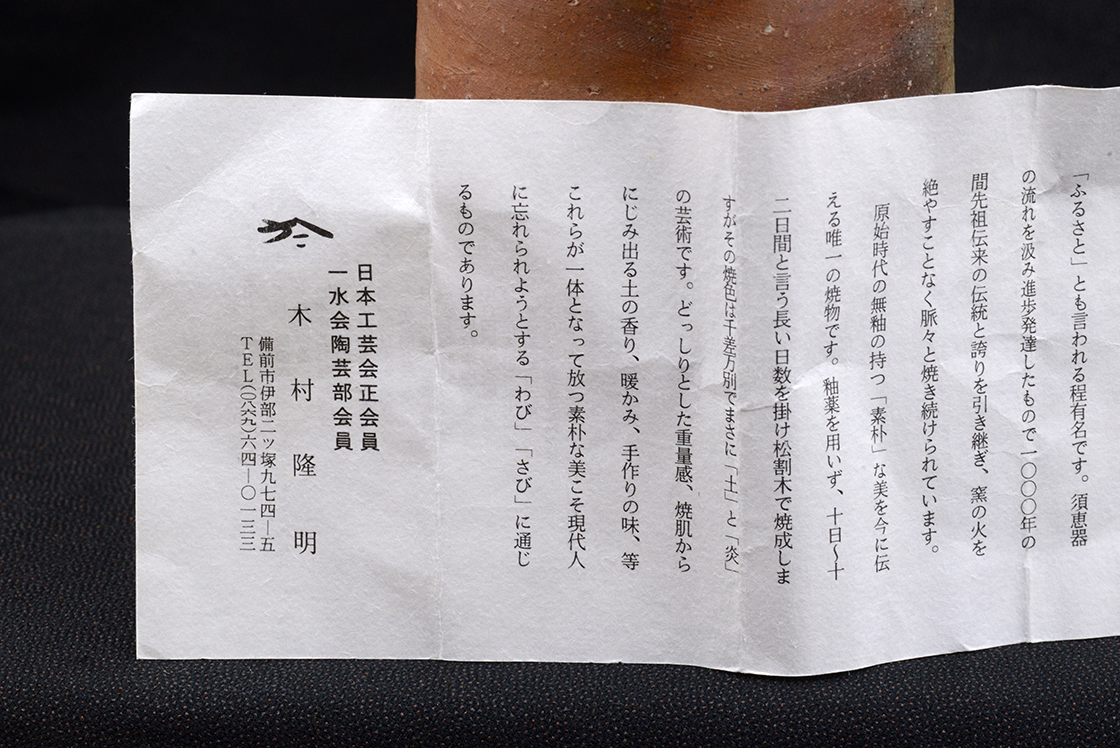 「ふるさと」とも言われる程有名です。須恵器
の流れを汲み進歩発達したもので一〇〇〇年の
間先祖伝来の伝統と誇りを引き継ぎ、窯の火を
絶やすことなく脈々と焼き続けられています。
原始時代の無釉の持つ「素朴」な美を今に伝
える唯一の焼物です。釉薬を用いず、十日〜十
二日間と言う長い日数を掛け松割木で焼成しま
すがその焼色は千差万別でまさに「土」と「炎」
の芸術です。どっしりとした重量感、焼肌から
にじみ出る土の香り、暖かみ、手作りの味、等
これらが一体となって放つ素朴な美こそ現代人
に忘れられようとする「わび」「さび」に通じ
るものであります。
日本工芸会正会員
一水会陶芸部会員
木村隆明
備前市伊部二ッ塚九七四―五
TEL(〇八六九)六四―〇一三三